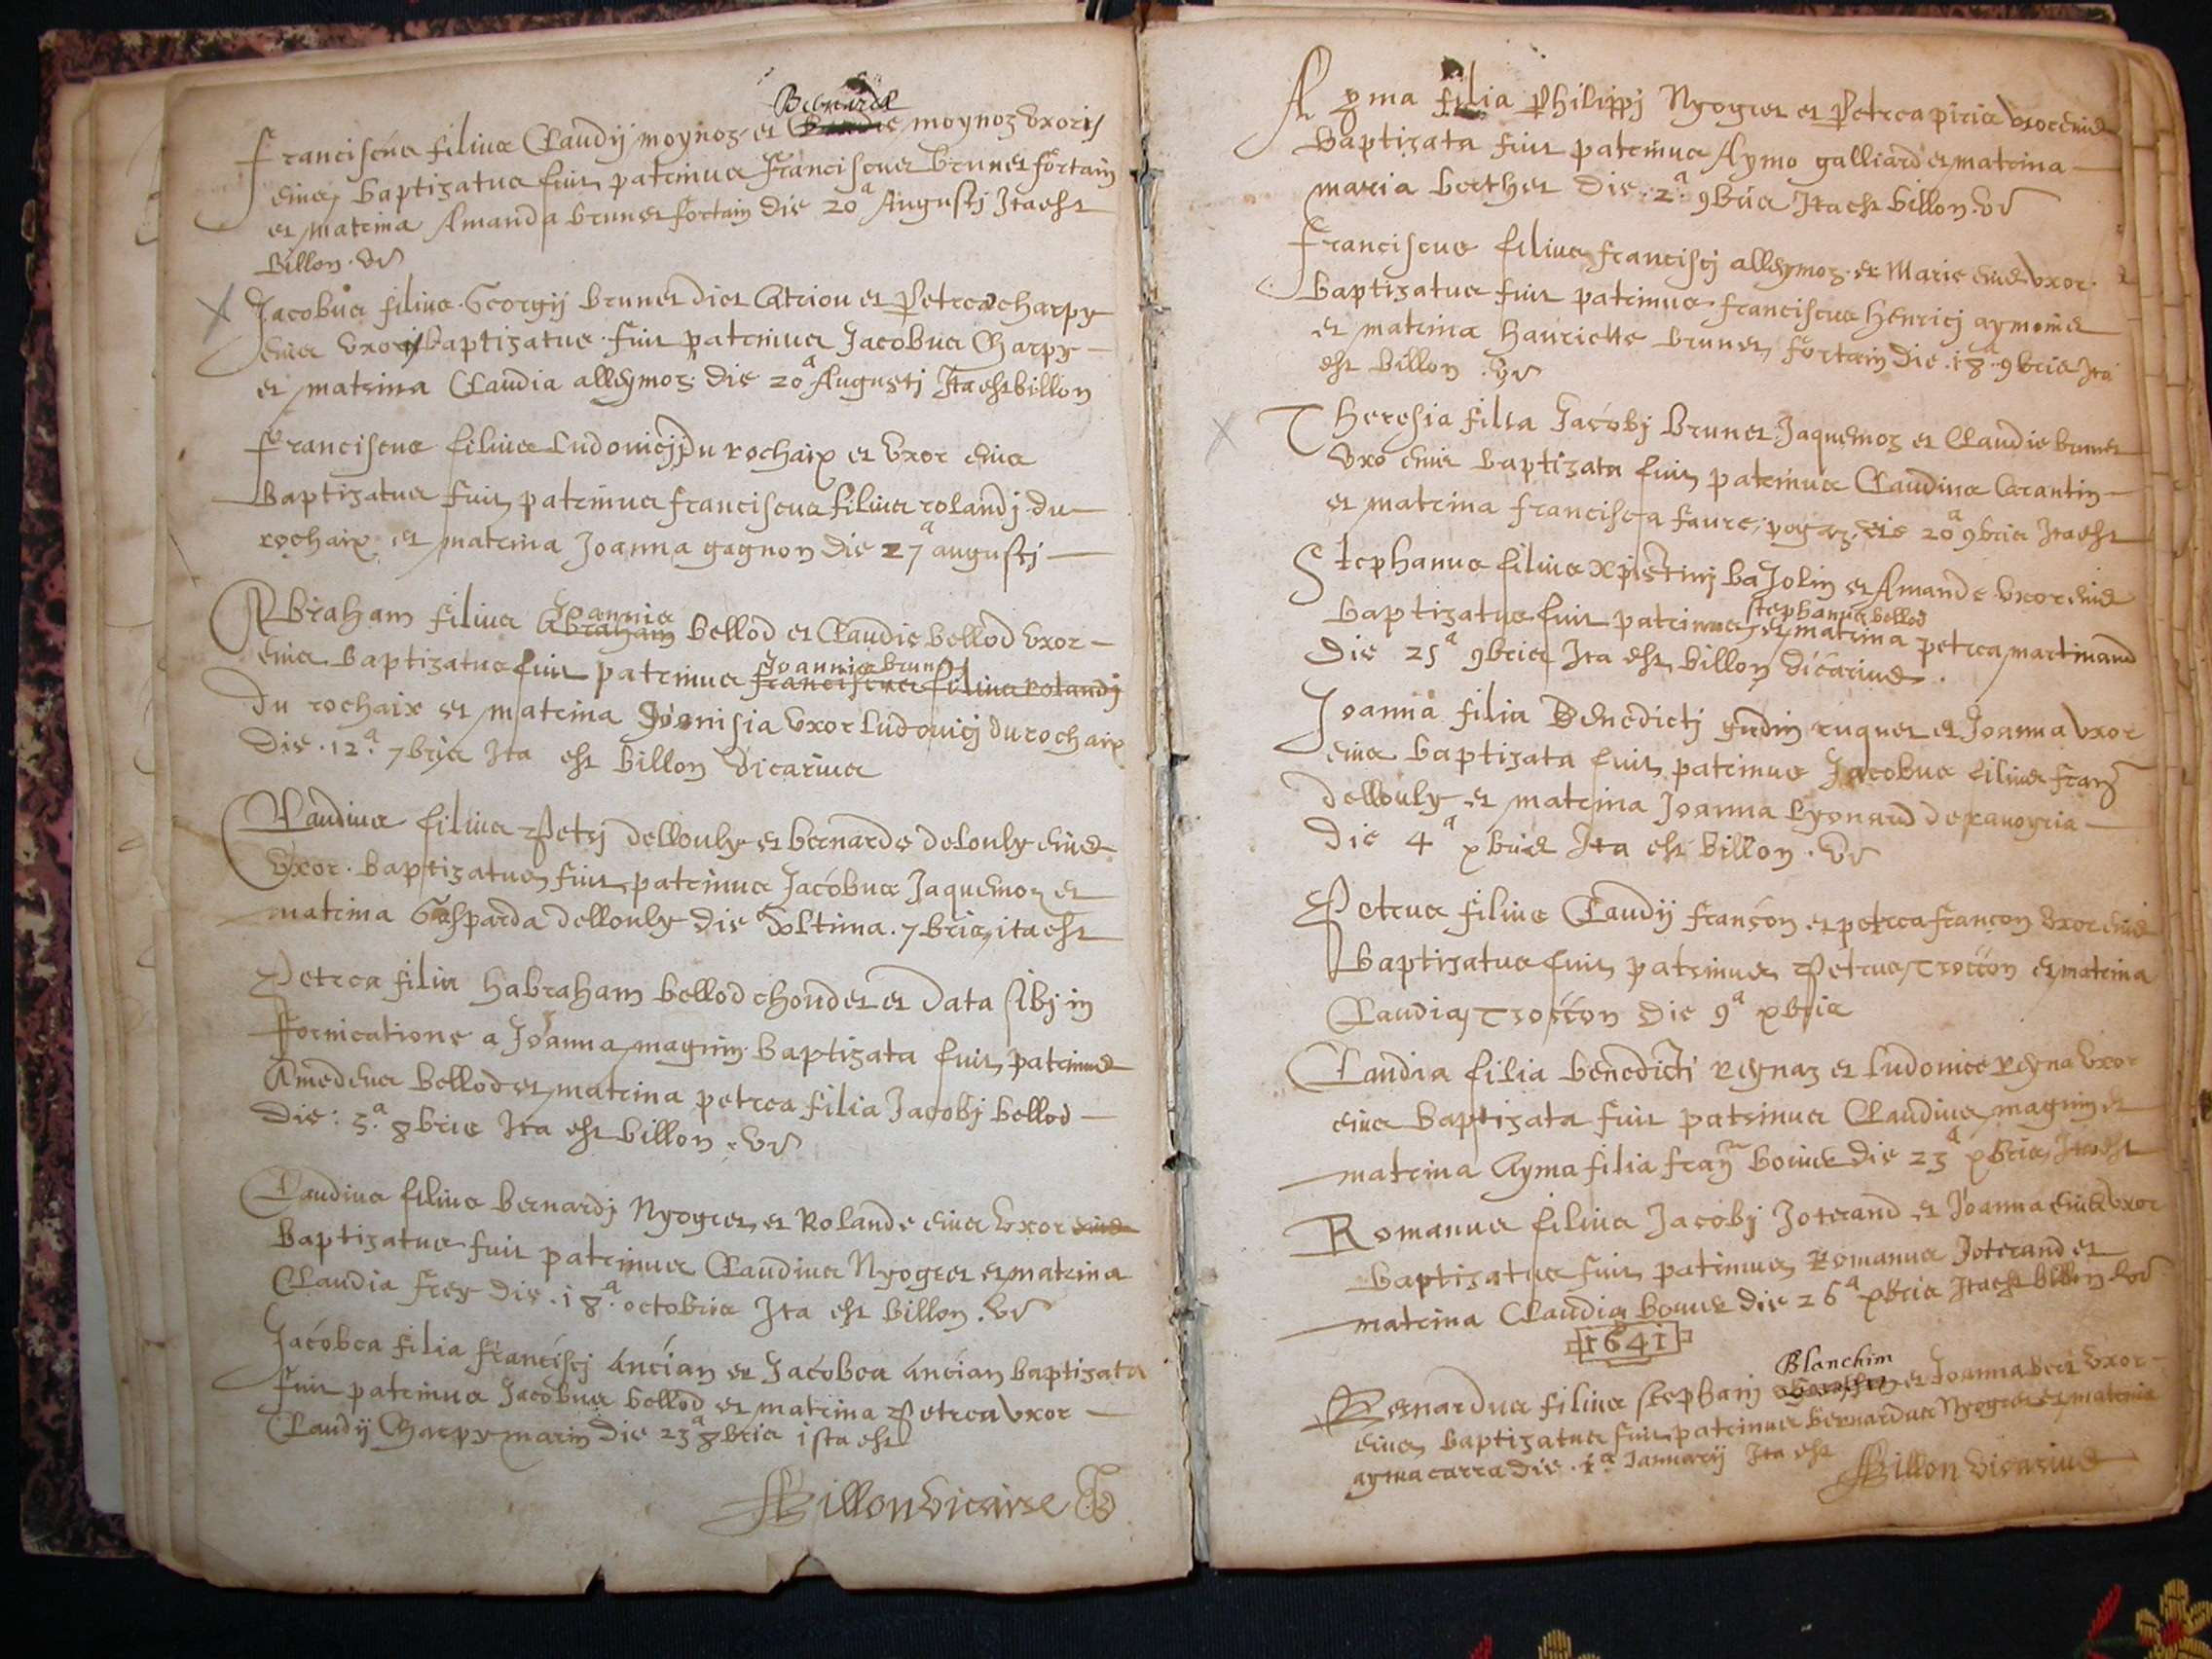 Bernarde
franciscus filius Claudij moynoz et moynoz uxoris
eius baptizatus fuit patrinus franciscus brunet fortain
et matrina Amanda brunet fortain die 20a Augustj Ita est
billon vr
Jacobus filius Georgij brunet dict Catriou et Petrea charpy
eius uxoris baptizatus fuit patrinus Jacobus Charpy
et matrina Claudia alleymoz die 20a Augustj Ita est billon
franciscus filius Ludovicj du rochaix et uxor eius
baptizatus fuit patrinus franciscus filius rolandj du
rochaix et matrina Joanna gagnon die 27a augustj
Joannis
Abraham filius Abraham bellod et Claudie bellod uxor
eius baptizatus fuit patrinus franciscus filius rolandj
du rochaix et matrina Dionisia uxor Ludovicj du rochaix
die 12a 7bris Ita est billon vicarius
Claudius filius Petrj dellouly et bernarde delouly eius
uxor baptizatus fuit patrinus Jacobus Jaquemoz et
matrina Gasparda dellouly die Ultima 7bris ita est
Petrea filia habraham bellod choudet et data sibj in
fornicatione a Joanna magnin baptizata fuit patrinus
Amedeus bellod et matrina petrea filia Jacobj bellod
die 5a 8bris Ita est billon vr
Claudius filius bernardj Nyogret et Rolande eius uxor eius
baptizatus fuit patrinus Claudius Nyogret et matrina
Claudia frey die 18a octobris Ita est billon vr
Jacobea filia franciscj ancian et Jacobea ancian baptizata
fuit patrinus Jacobus bellod et matrina Petrea uxor
Claudij Charpy marin die 23a 8bris ista est
Billon vicaire
Ayma filia Philippj Nyogret et Petrea piria uxor eius
baptizata fuit patrinus Aymo galliard et matrina
maria berthet die 2a 9bris Ita est billon vr
franciscus filius franciscj alleymoz et Marie eius uxor
baptizatus fuit patrinus franciscus henricj aymoner
et matrina hanriette brunet fortain die 18a 9bris Ita
est billon vr
Theresia filia Jacobj brunet Jaquemoz et Claudie brunet
uxo eius baptizata fuit patrinus Claudius Carantin
et matrina francisca faure die 20a 9bris Ita est
Stephanus filius Xpistinj bajolin et Amande uxor eius
stephanus bellod
baptizatus fuit patrinus et matrina petrea martinand
die 25a 9bris Ita est billon vicarius
Joanna filia Benedictj gudin ruquet et Joanna uxor
eius baptizata fuit patrinus Jacobus filius
dellouly et matrina Joanna Lyonard de ravoyria
die 4a xbris Ita est billon vr
Petrus filius Claudij françon et petrea francon uxor eius
baptizatus fuit patrinus Petrus Troccon et matrina
Claudia Troccon die 9a xbris
Claudia filia benedicti reynaz et ludovice reyna uxor
eius baptizata fuit patrinus Claudius magnin et
matrina Ayma filia bovier die 23a xbris Ita est
Romanus filius Jacobj Joterand et Joanna eius uxor
baptizatus fuit patrinus Romanus Joterand et
matrina Claudia die 26a xbris Ita est billon vr
1641
Blanchim
Bernardus filius stephanj et Joanna uxor
eius baptizatus fuit patrinus bernardus Nyogret et matrina
ayma carra die 1a Januarij Ita est
Billon vicarius